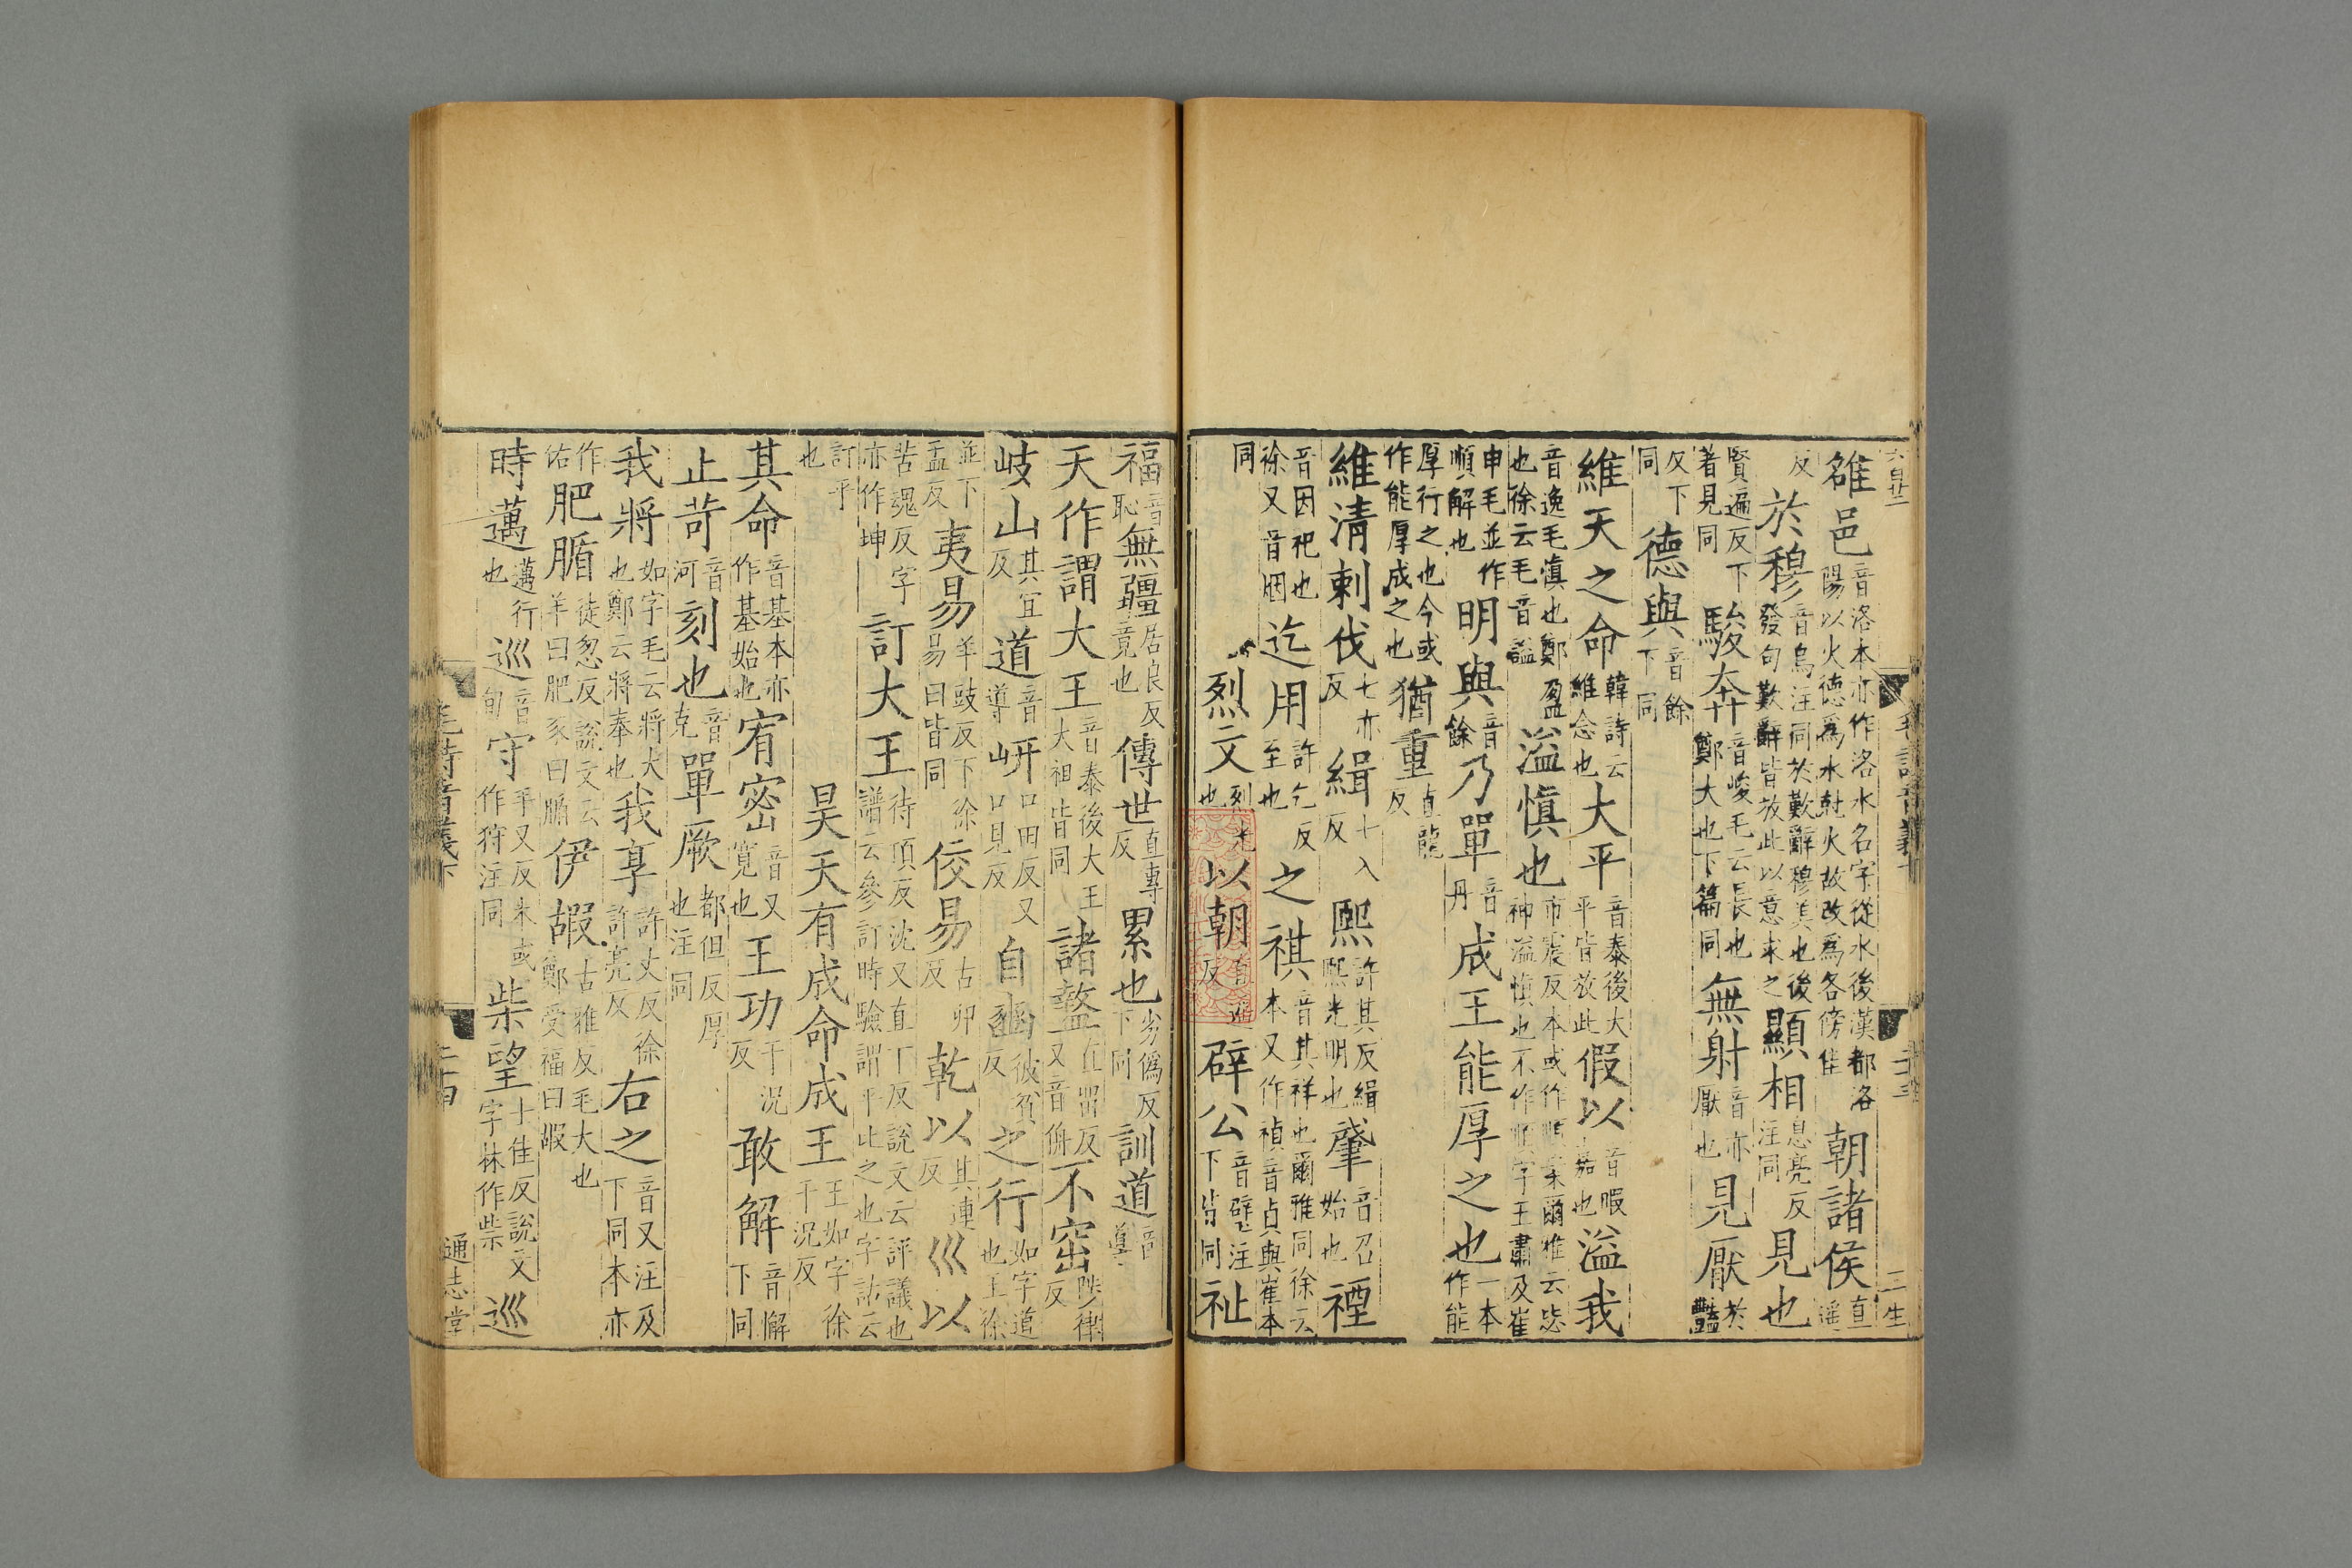 雒邑音洛本亦作洛水名字從水後漢都洛陽以火德爲水尅火故改爲各傍隹朝諸侯直遥
反於穆音烏注同於歎辭穆美也後發句歎辭皆放此以意求之顯相息亮反注同見也
賢遍反下著見同駿奔音峻毛云長也鄭大也下篇同無射音亦厭也見厭於豔
反下同德與音餘下同
維天之命韓詩云維念也大平音泰後大平皆放此假以音暇嘉也溢我
音逸毛愼也鄭盈也徐云毛音謚溢愼也市震反本或作順案爾雅云毖神溢愼也不作順字王肅及崔
申毛並作順解也明與音餘乃單音丹成王能厚之也一本作能
厚行之也今或作能厚成之也猶重直龍反
維清刺伐七亦反緝七入反熙許其反緝熙光明也肇音召始也禋
音因祀也徐又音烟迄用許乞反至也之祺音其祥也爾雅同徐云本又作禎音貞與崔本
同烈文烈光也以朝直遥反辟公音璧注下皆同祉
福音恥無疆居良反竟也傳世直專反累也劣僞反下同訓道音導
天作謂大王音泰後大王大祖皆同諸盩直留反又音侜不窋陟律反
岐山其宜反道音導岍口田反又口見反自豳彼貧反之行如字道也王徐
並下孟反夷易羊豉反下徐易曰皆同佼易古卯反乾以其連反巛以
苦魂反字亦作坤訂大王待頂反沈又直丁反說文云評議也譜云參訂時驗謂平比之也字詁云
訂平也昊天有成命成王王如字徐于況反
其命音基本亦作基始也宥密音又寛也王功于況反敢解音懈下同
止苛音河刻也音克單厥都但反厚也注同
我將如字毛云將大也鄭云將奉也我享許丈反徐許亮反右之音又注及下同本亦
作佑肥腯徒忽反說文云羊曰肥豕曰腯伊嘏古雅反毛大也鄭受福曰嘏
時邁邁行也巡音旬守手又反本或作狩注同柴望士佳反說文字林作祡巡
通志堂